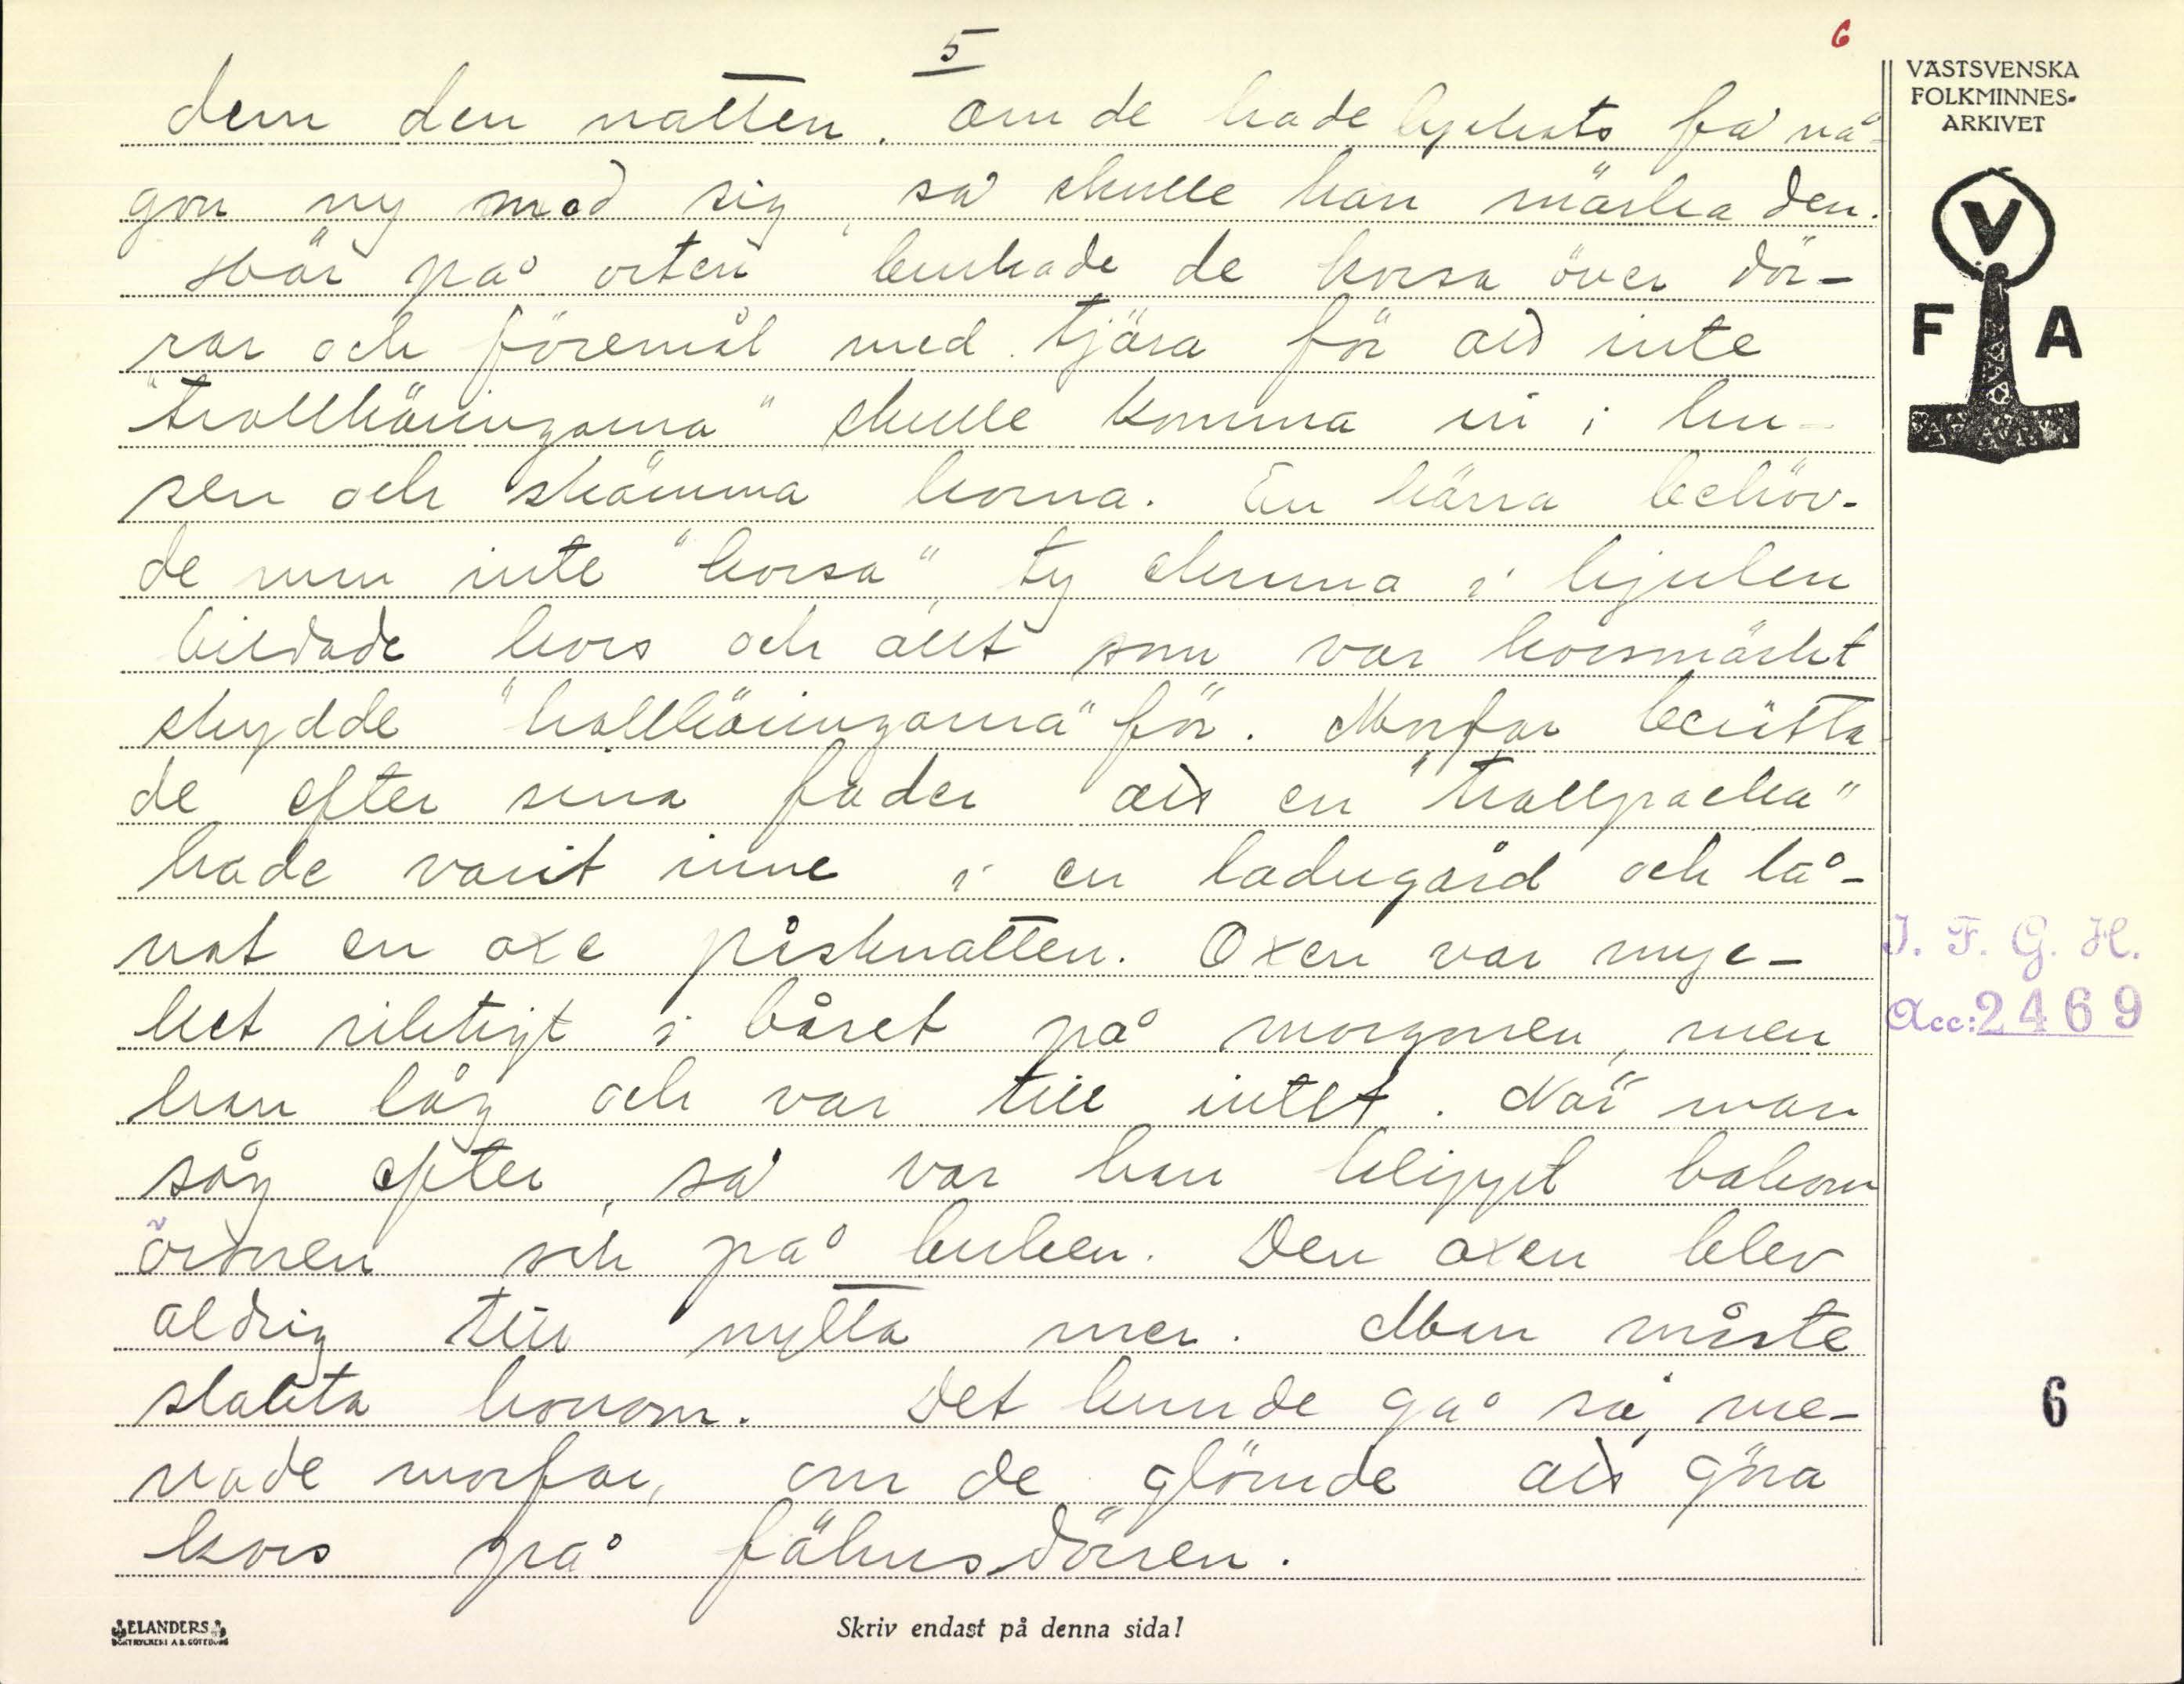 5
6
dem den natten. Om de hade lyckats få nå-
gon ny med sig, så skulle han märka den.
Här på orten brukade de korsa över dör-
rar och föremål med tjära för att inte
"trollkäringarna" skulle komma in i hu-
sen och skämma korna. En kärra behöv-
de man inte "korsa", ty ekrarna i hjulen
bildade kors och allt som var korsmärkt
skydde "trollkäringarna" för. Morfar berätta-
de efter sina fäder att en "trollpacka"
hade varit inne i en ladugård och lå-
nat en oxe påsknatten. Oxen var myc-
ket riktigt i båset på morgonen, men
han låg och var till intet. När man
såg efter, så var han klippt bakom
öronen och på buken. Den oxen blev
aldrig till nytta mer. Man måste
slakta honom. Det kunde gå så, me-
nade morfar, om de glömde att göra
kors på fähusdörren.
VÄSTSVENSKA
FOLKMINNES-
ARKIVET
V
F A
I. F. G. H.
Acc: 2469
6
ELANDERS
BOKTRYCKERI A.B. GÖTEBORG
Skriv endast på denna sida!